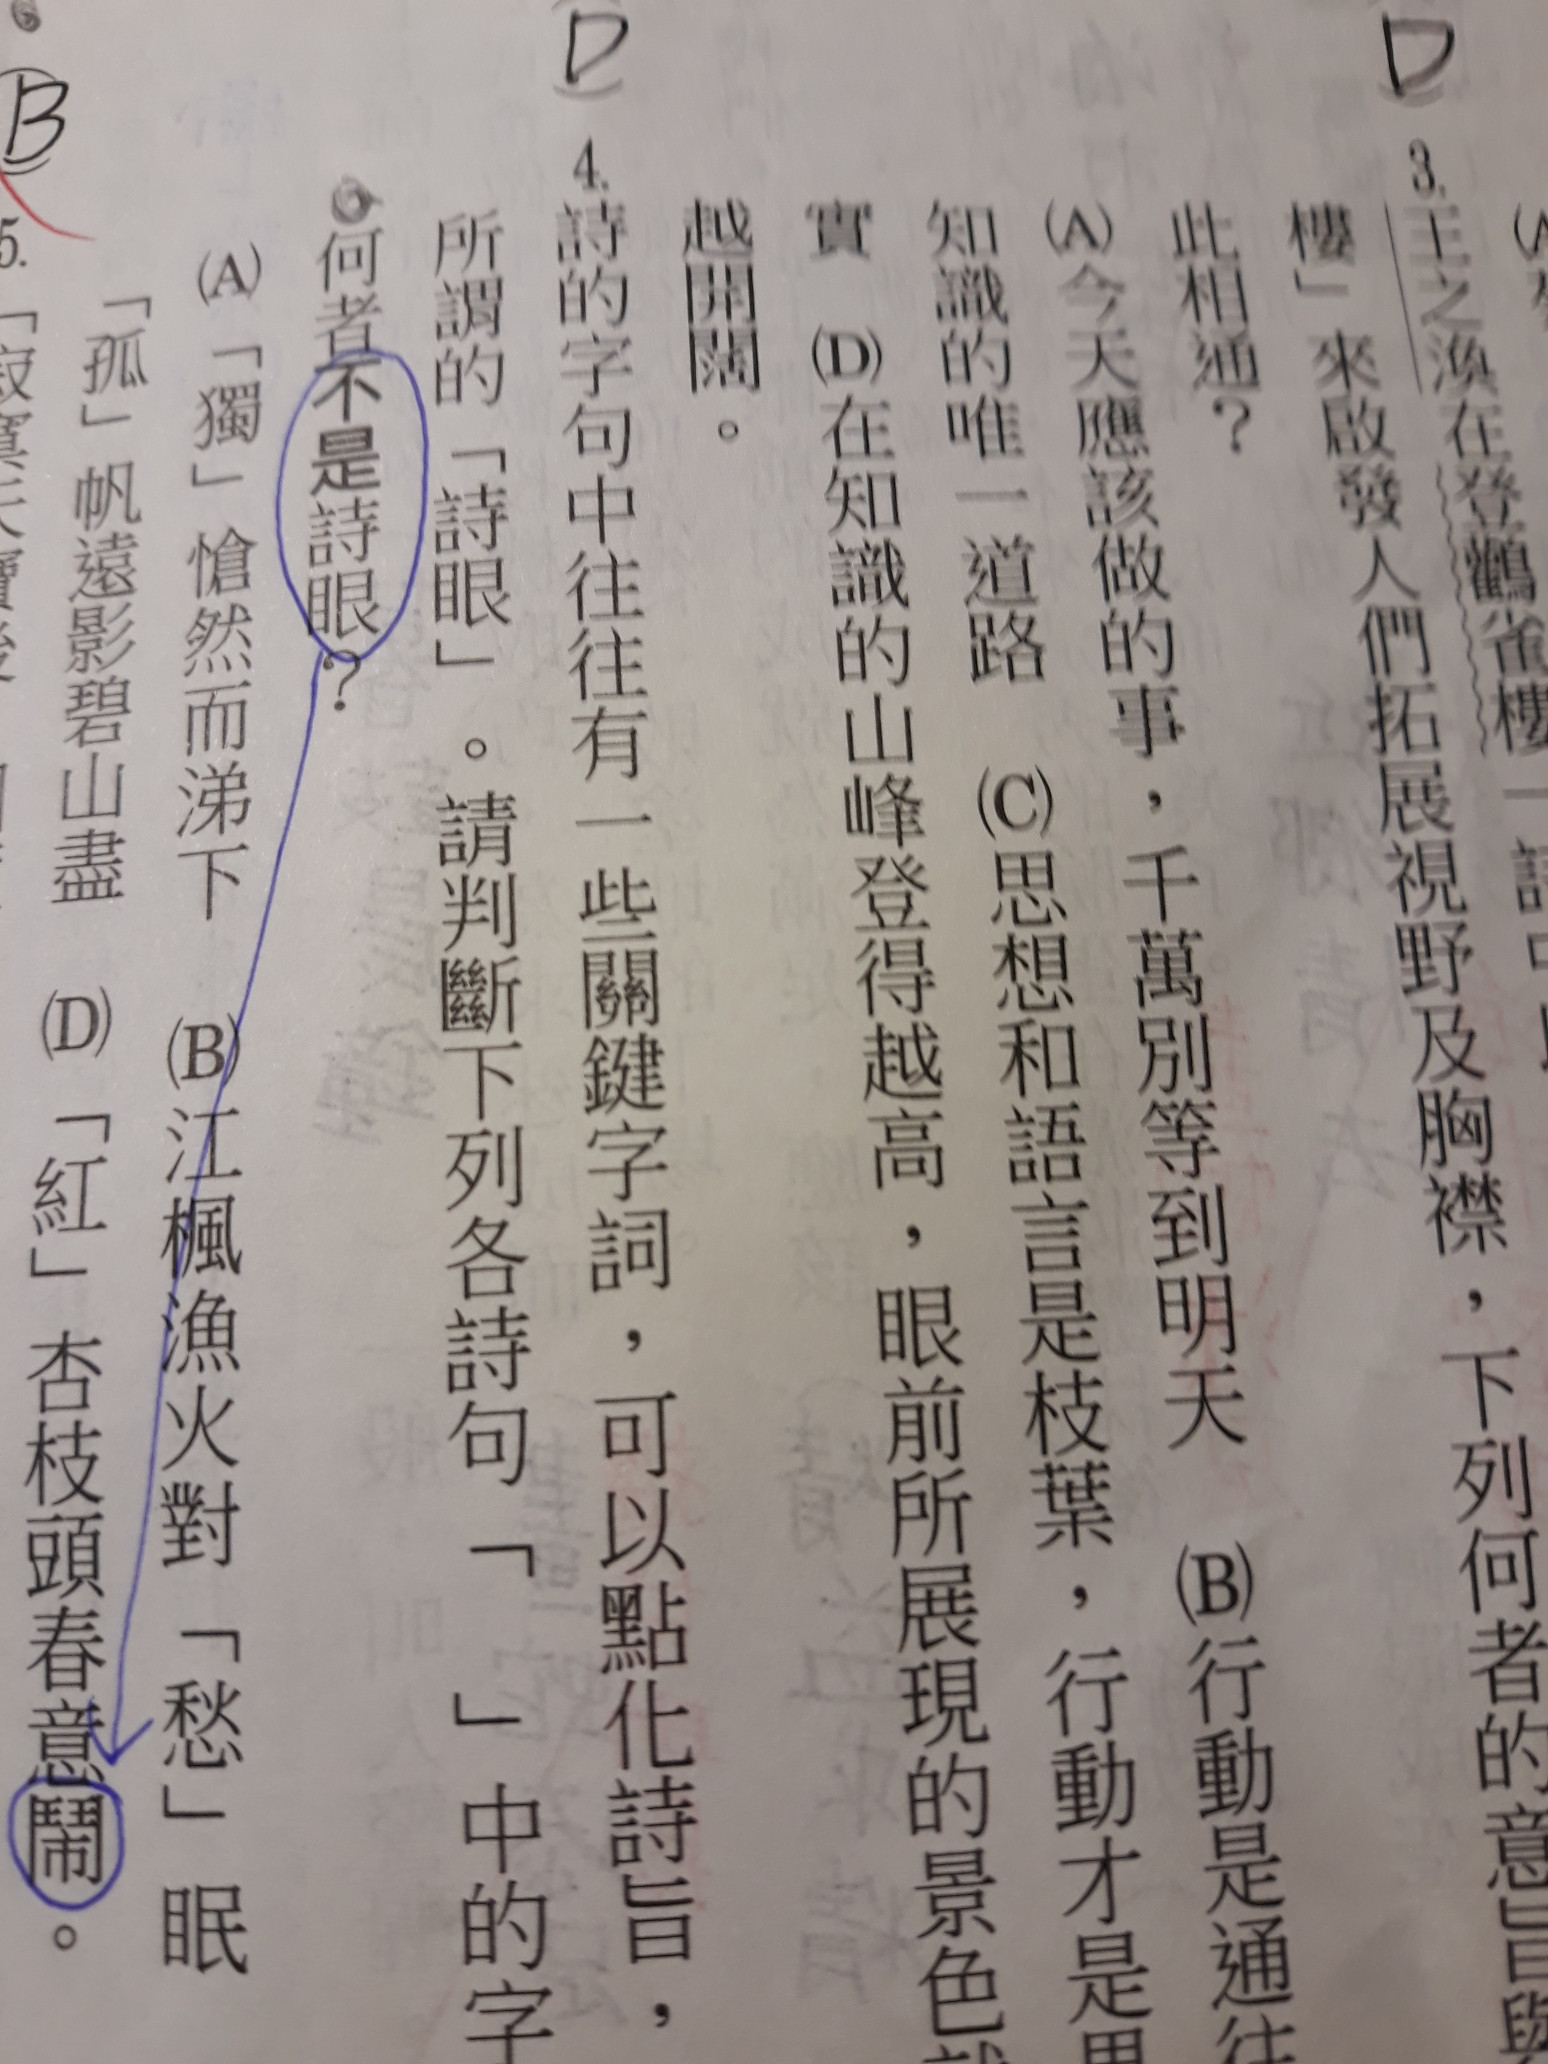 D
3. 王之渙在登鸛雀樓一詩中
樓」來啟發人們拓展視野及胸襟,下列何者的意旨與
此相通?
(A)今天應該做的事,千萬別等到明天 (B)行動是通往
知識的唯一道路 (C)思想和語言是枝葉,行動才是
實 (D)在知識的山峰登得越高,眼前所展現的景色就
越開闊。
D
4. 詩的字句中往往有一些關鍵字詞,可以點化詩旨,
所謂的「詩眼」。請判斷下列各詩句「 」中的字
何者不是詩眼?
(A)「獨」愴然而涕下 (B)江楓漁火對「愁」眠
「孤」帆遠影碧山盡 (D)「紅」杏枝頭春意鬧。
B
5. 「寂寞天寶後